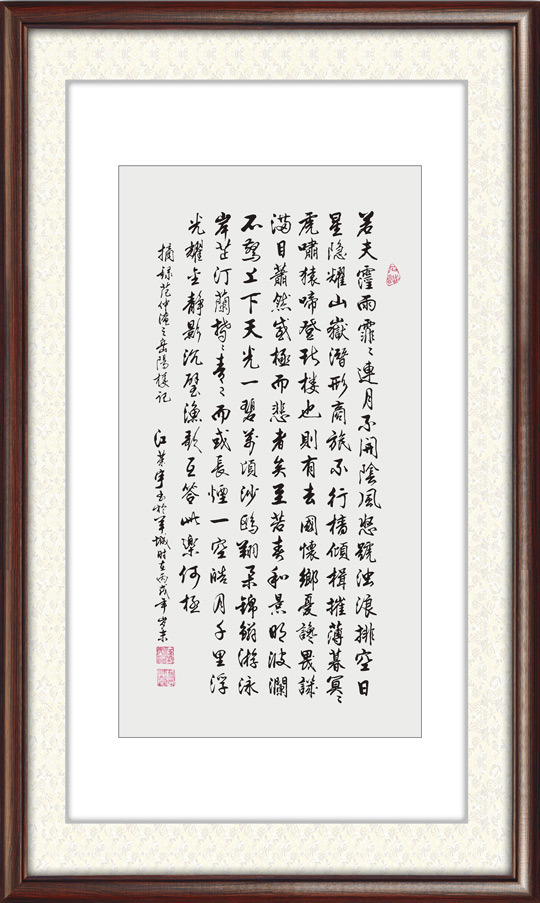 若夫霪雨霏〻連月不開陰風怒號浊浪排空日
星隐耀山嶽潛形商旅不行檣傾楫摧薄暮冥〻
虎嘯猿啼登斯楼也則有去國懷鄉憂讒畏譏
满目蕭然感極而悲者矣至若春和景明波瀾
不驚上下天光一碧萬頃沙鷗翔集錦鳞游泳
岸芷汀蘭鬱〻青〻而或長煙一空皓月千里浮
光耀金静影沉璧漁歌互答此樂何極
摘録范仲淹之岳陽樓記 江宇書於羊城时在丙戌年岁末